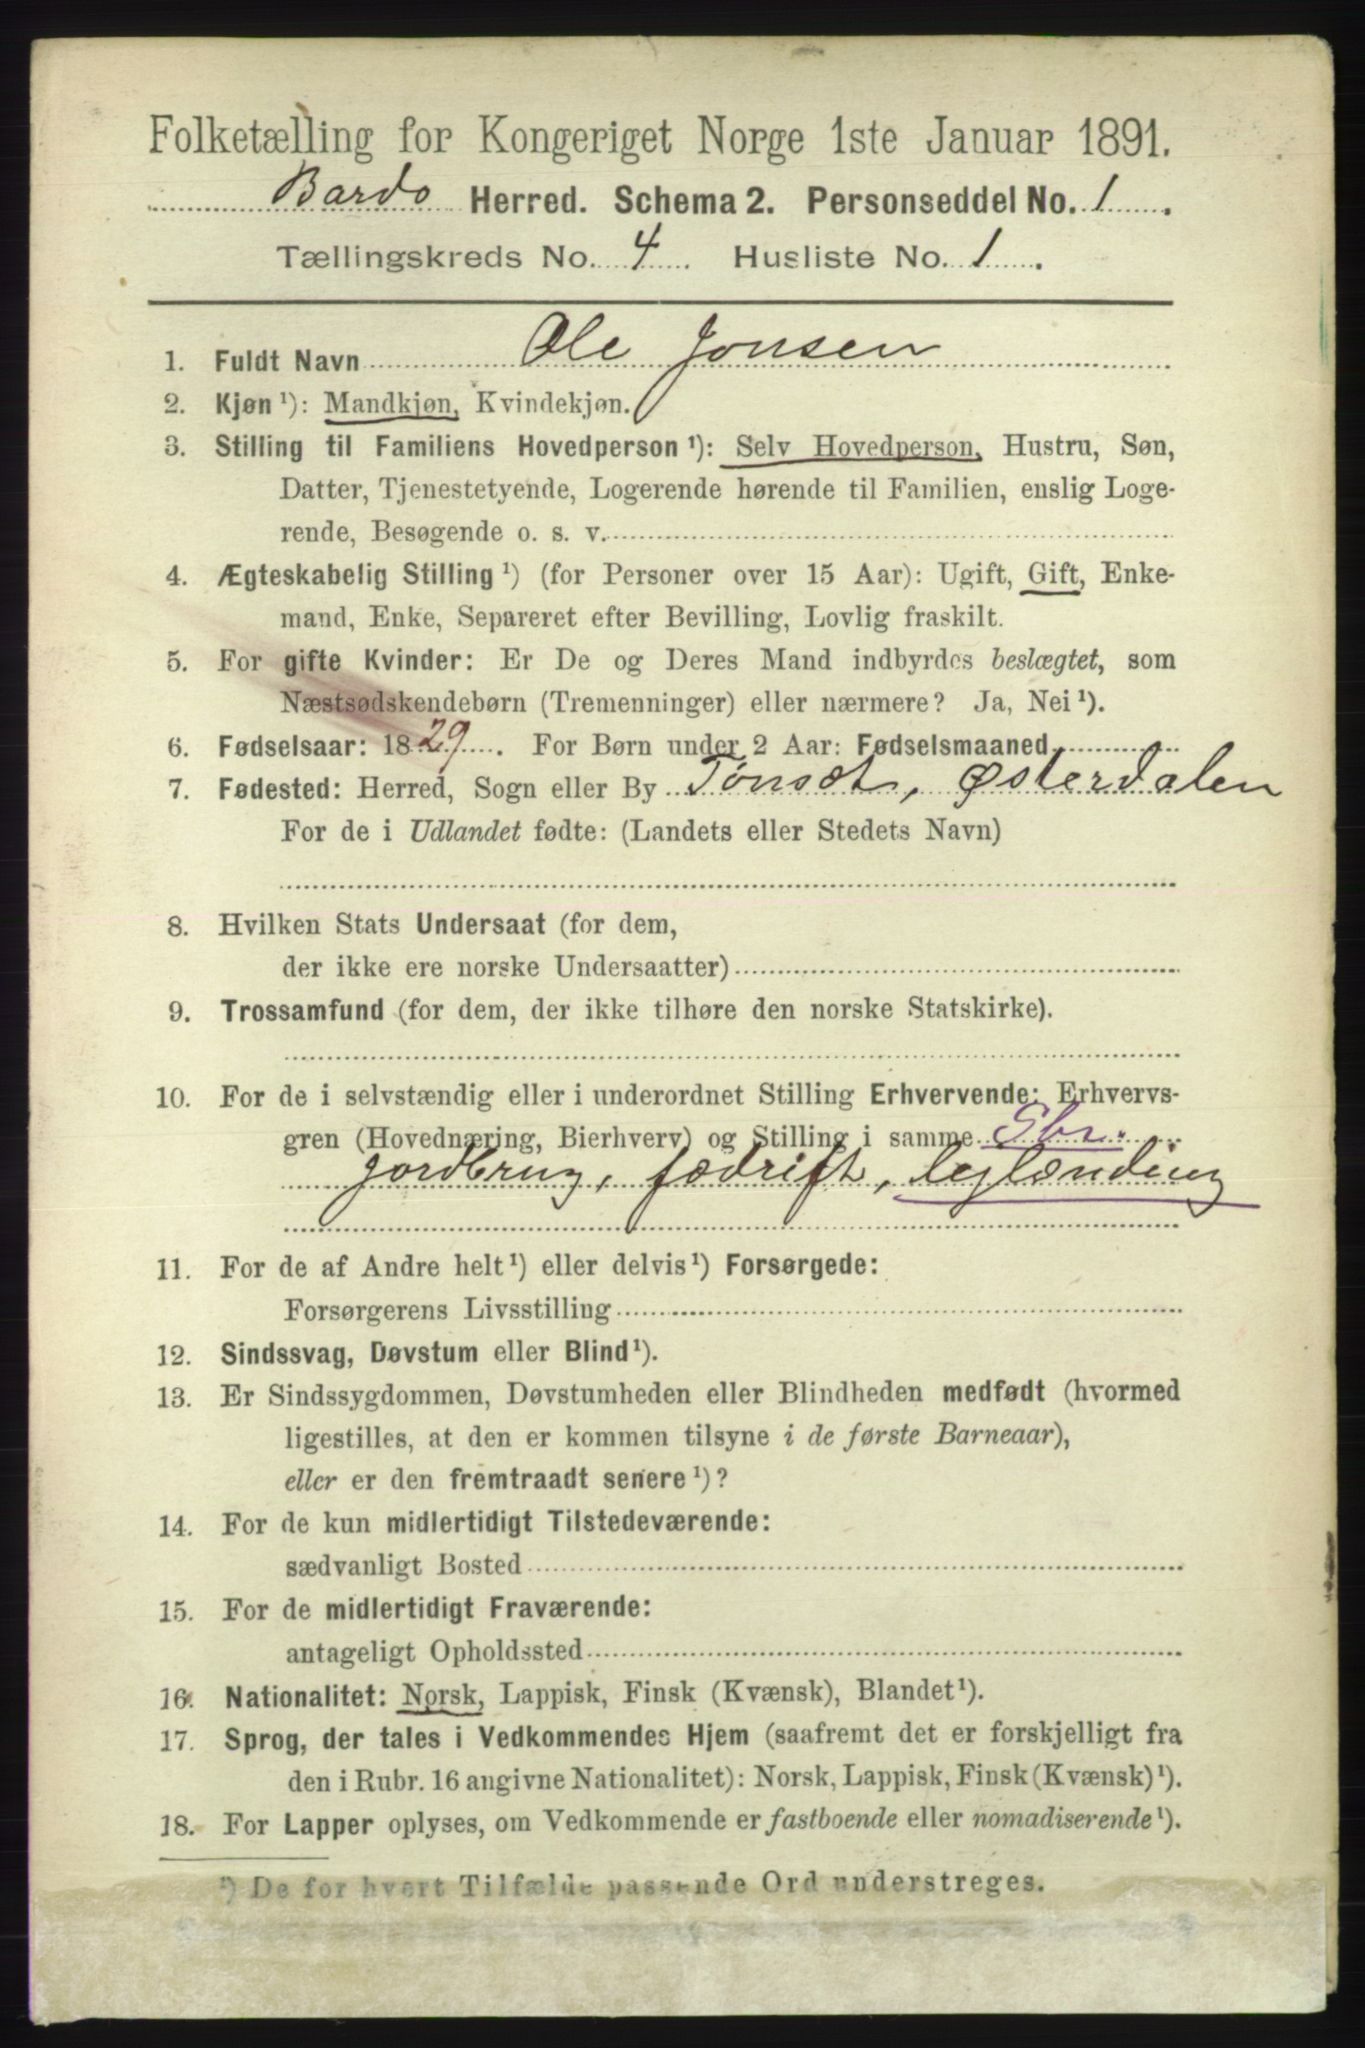 Folketælling for Kongeriget Norge 1ste Januar 1891.
Bardo Herred. Schema 2. Personseddel No. 1.
Tællingskreds No. 4. Husliste No. 1.
1. Fuldt Navn Ole Jonsen
2. Kjøn ¹): Mandkjøn, Kvindekjøn.
3. Stilling til Familiens Hovedperson ¹): Selv Hovedperson, Hustru, Søn,
Datter, Tjenestetyende, Logerende hørende til Familien, enslig Loge-
rende, Besøgende o. s. v.
4. Ægteskabelig Stilling ¹) (for Personer over 15 Aar): Ugift, Gift, Enke-
mand, Enke, Separeret efter Bevilling, Lovlig fraskilt.
5. For gifte Kvinder: Er De og Deres Mand indbyrdes beslægtet, som
Næstsødskendebørn (Tremenninger) eller nærmere? Ja, Nei ¹).
6. Fødselsaar: 1829. For Børn under 2 Aar: Fødselsmaaned
7. Fødested: Herred, Sogn eller By Tønsæt, Østerdalen
For de i Udlandet fødte: (Landets eller Stedets Navn)
8. Hvilken Stats Undersaat (for dem,
der ikke ere norske Undersaatter)
9. Trossamfund (for dem, der ikke tilhøre den norske Statskirke).
10. For de i selvstændig eller i underordnet Stilling Erhvervende: Erhvervs-
gren (Hovednæring, Bierhverv) og Stilling i samme Gbr.
Jordbrug, fædrift, leglænding
11. For de af Andre helt ¹) eller delvis ¹) Forsørgede:
Forsørgerens Livsstilling
12. Sindssvag, Døvstum eller Blind ¹).
13. Er Sindssygdommen, Døvstumheden eller Blindheden medfødt (hvormed
ligestilles, at den er kommen tilsyne i de første Barneaar),
eller er den fremtraadt senere ¹)?
14. For de kun midlertidigt Tilstedeværende:
sædvanligt Bosted
15. For de midlertidigt Fraværende:
antageligt Opholdssted
16. Nationalitet: Norsk, Lappisk, Finsk (Kvænsk), Blandet ¹).
17. Sprog, der tales i Vedkommendes Hjem (saafremt det er forskjelligt fra
den i Rubr. 16 angivne Nationalitet): Norsk, Lappisk, Finsk (Kvænsk) ¹).
18. For Lapper oplyses, om Vedkommende er fastboende eller nomadiserende ¹).
¹) De for hvert Tilfælde passende Ord understreges.